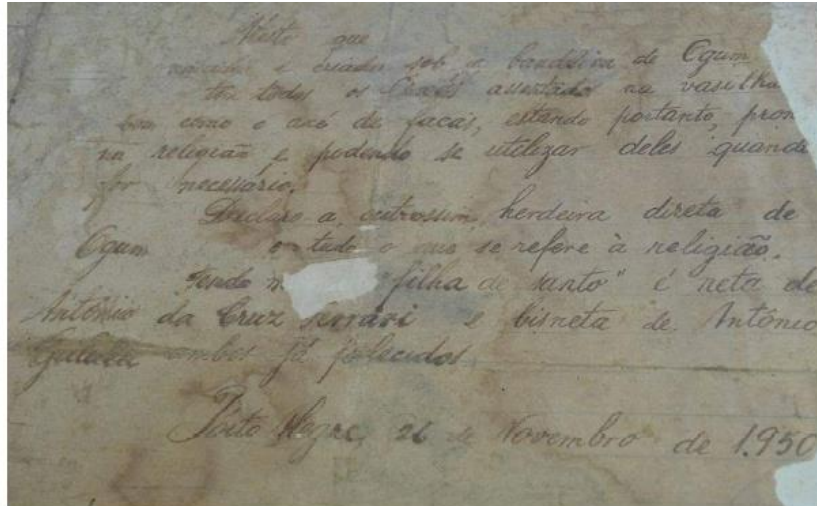 Atesto que
nascida e criada sob a bandeira de Ogum
tem todos os Orixás assentados na vasilha
bem como o axé de facas, estando portanto, pron
na religião e podendo se utilizar deles quando
for necessário.
Declaro a, outrossim, herdeira direta de
Ogum em tudo o que se refere à religião.
Sendo m "filha de santo" é neta de
Antônio da Cruz e bisneta de Antônio
ambos já falecidos
Porto Alegre, 26 de Novembro de 1.950